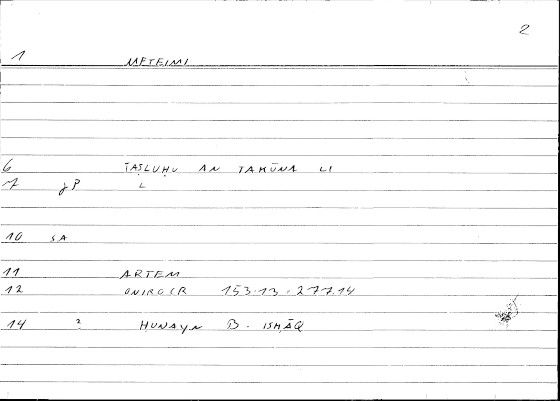 2
1 METEIMI
6 TAṢLUḤU AN TAKŪNA LI
7 gP L
10 SA
11 ARTEM
12 ONIROCR 153.13 - 277.14
14 2 HUNAYN B. ISḤĀQ